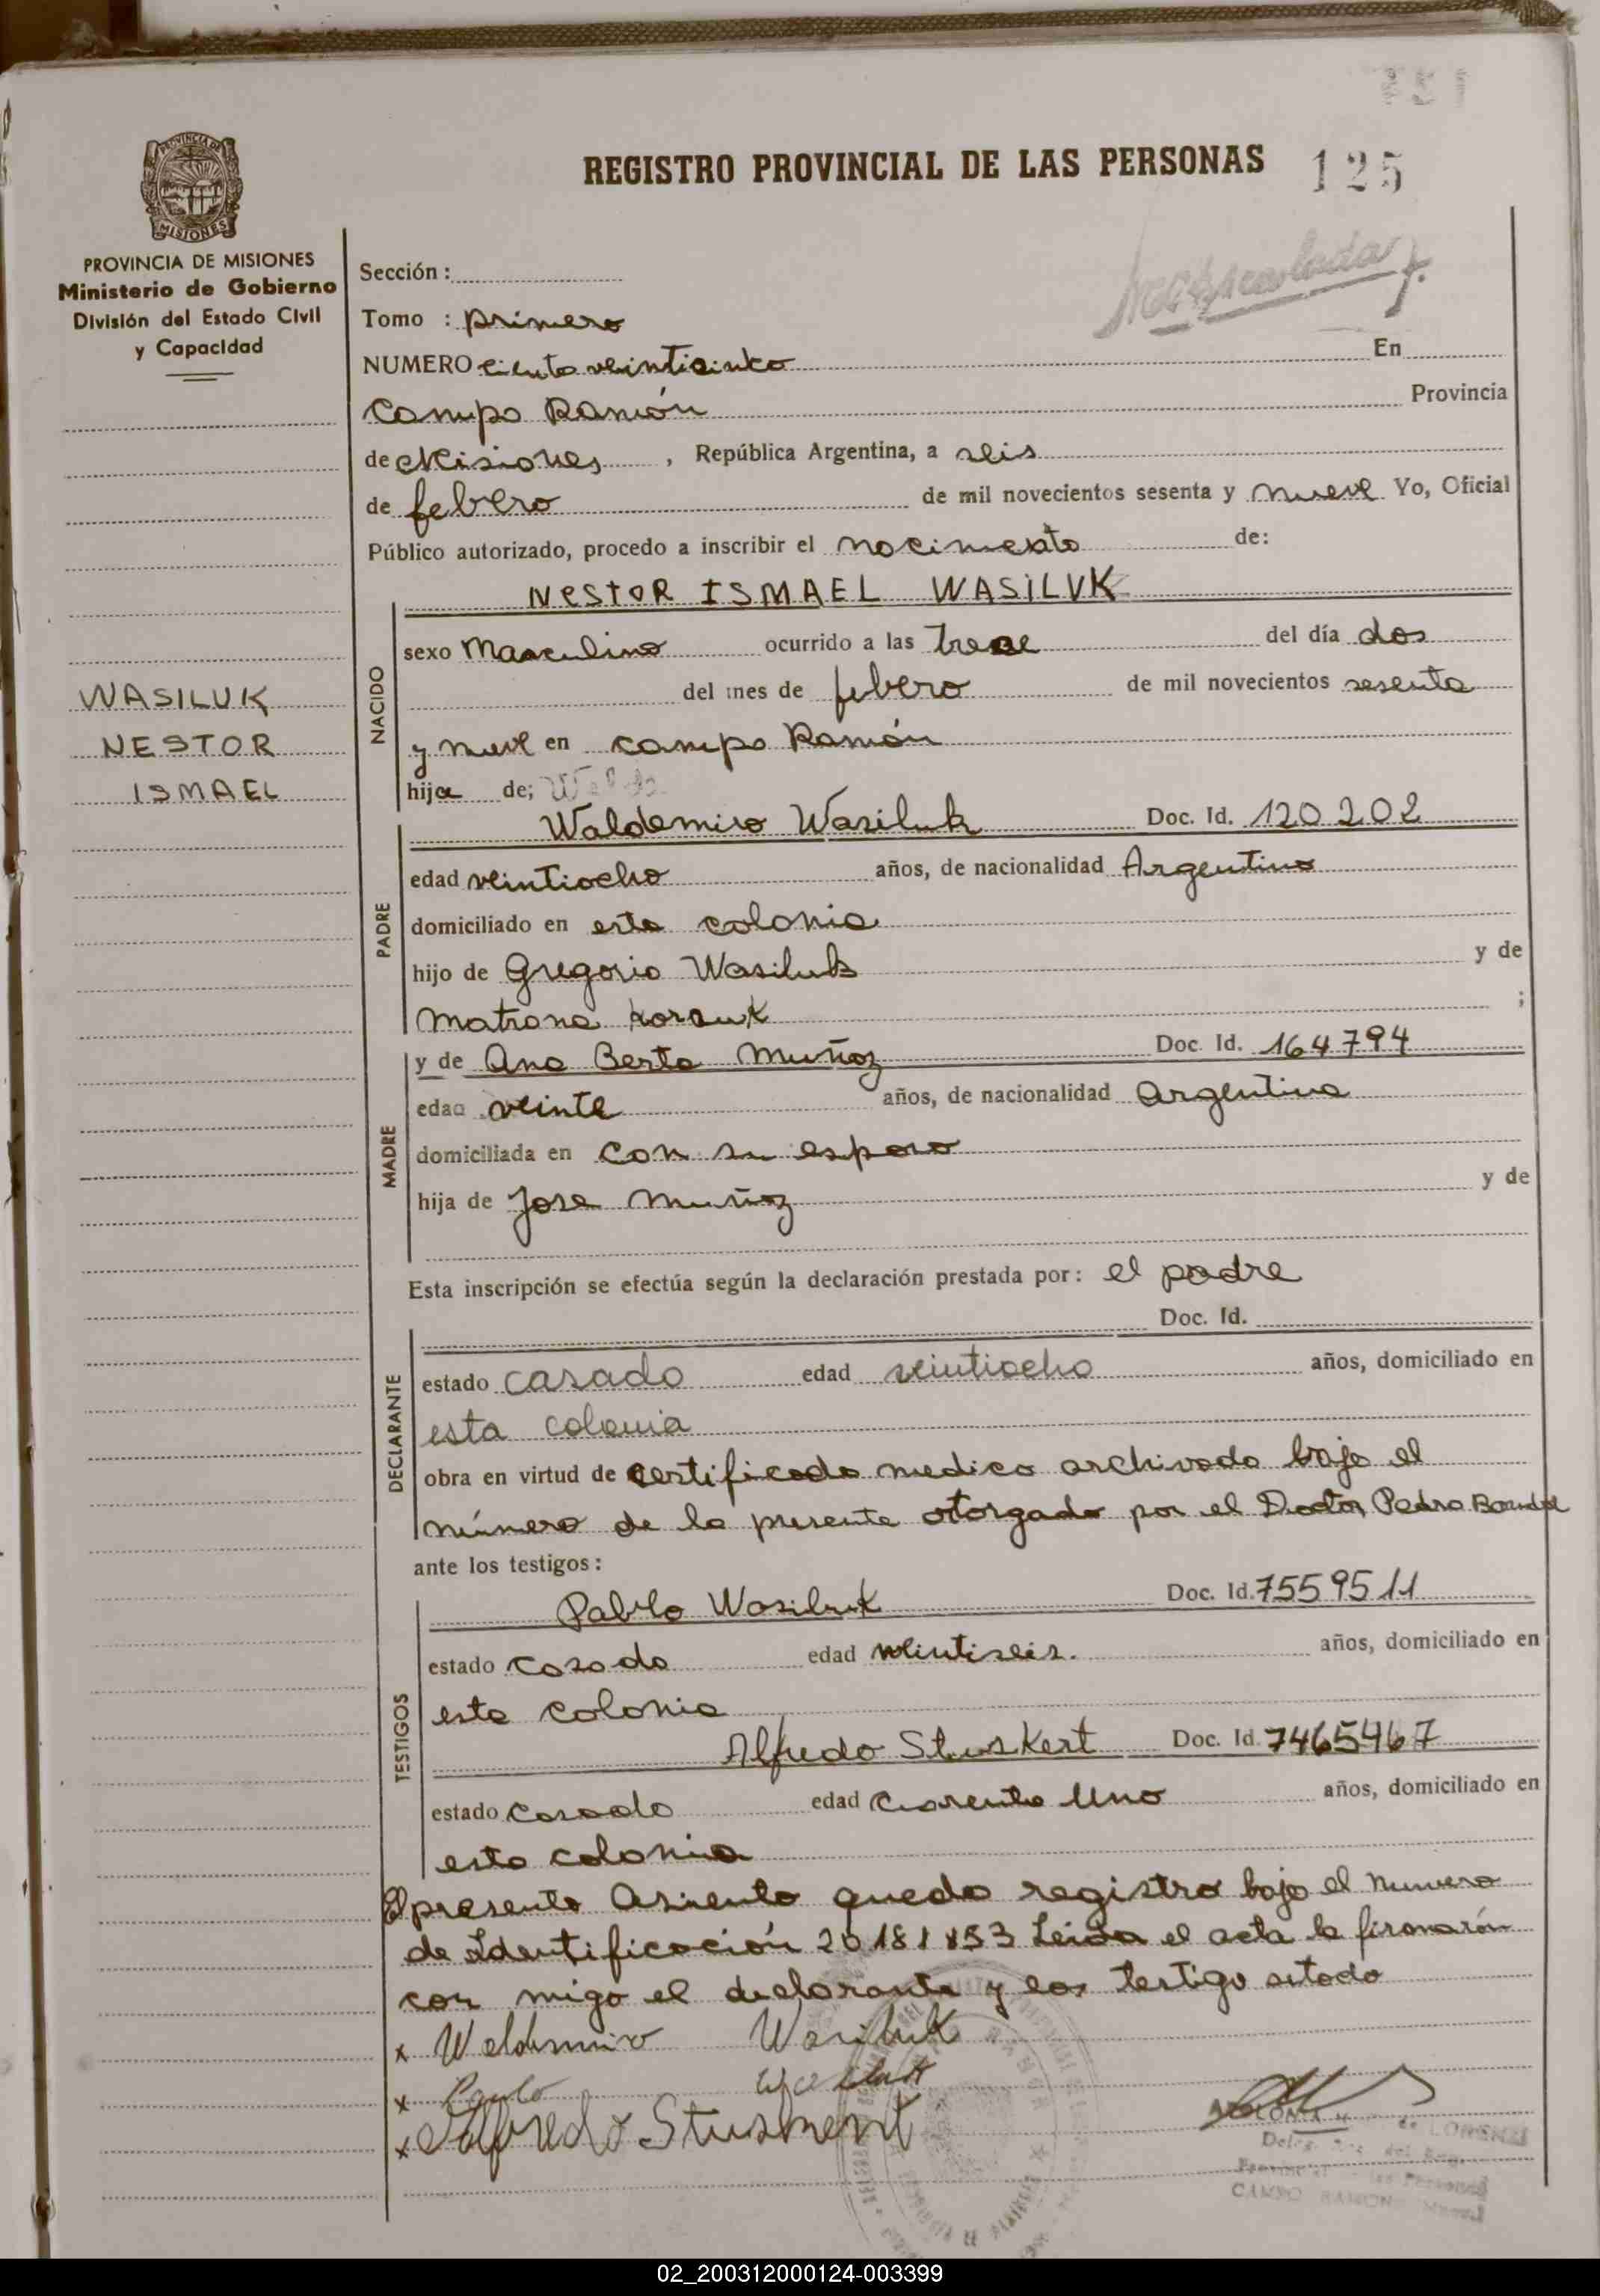 REGISTRO PROVINCIAL DE LAS PERSONAS 125
PROVINCIA DE MISIONES
Ministerio de Gobierno
División del Estado Civil
y Capacidad
WASILUK
NESTOR
ISMAEL
Sección :
Tomo : primero
NUMERO ciento veinticinko En
Campo Ramón Provincia
de Misiones , República Argentina, a seis
de febrero de mil novecientos sesenta y nueve Yo, Oficial
Público autorizado, procedo a inscribir el nacimiento de:
NESTOR ISMAEL WASILUK
NACIDO
sexo Masculino ocurrido a las trece del día dos
del mes de febero de mil novecientos sesenta
y nueve en campo Ramón
hijo de;
PADRE
Waldemiro Wasiluk Doc. Id. 120202
edad veintiocho años, de nacionalidad Argentino
domiciliado en esta colonia
hijo de Gregorio Wasiluk y de
Matrona ;
MADRE
y de Ana Berta Muñoz Doc. Id. 164794
edad veinte años, de nacionalidad argentina
domiciliada en con su esposo
hija de Jose Muñoz y de
Esta inscripción se efectúa según la declaración prestada por : el padre
Doc. Id.
DECLARANTE
estado casado edad veintiocho años, domiciliado en
esta colonia
obra en virtud de certificado medico archivado bajo el
número de la presente otorgado por el Doctor Pedro
ante los testigos :
TESTIGOS
Pablo Wasiluk Doc. Id. 7559511
estado casado edad veintiseis. años, domiciliado en
esta colonia
Alfredo Stuskert Doc. Id. 7465467
estado casado edad Cuarenta Uno años, domiciliado en
esta colonia
El presente Asiento queda registro bajo el numero
de Identificación 20181853 Leida el acta la firmarón
con migo el declarante y los testigo sitado
x Weldemiro Wasiluk
x Paulo
x Alfredo
CAMPO RAMON
02_200312000124-003399